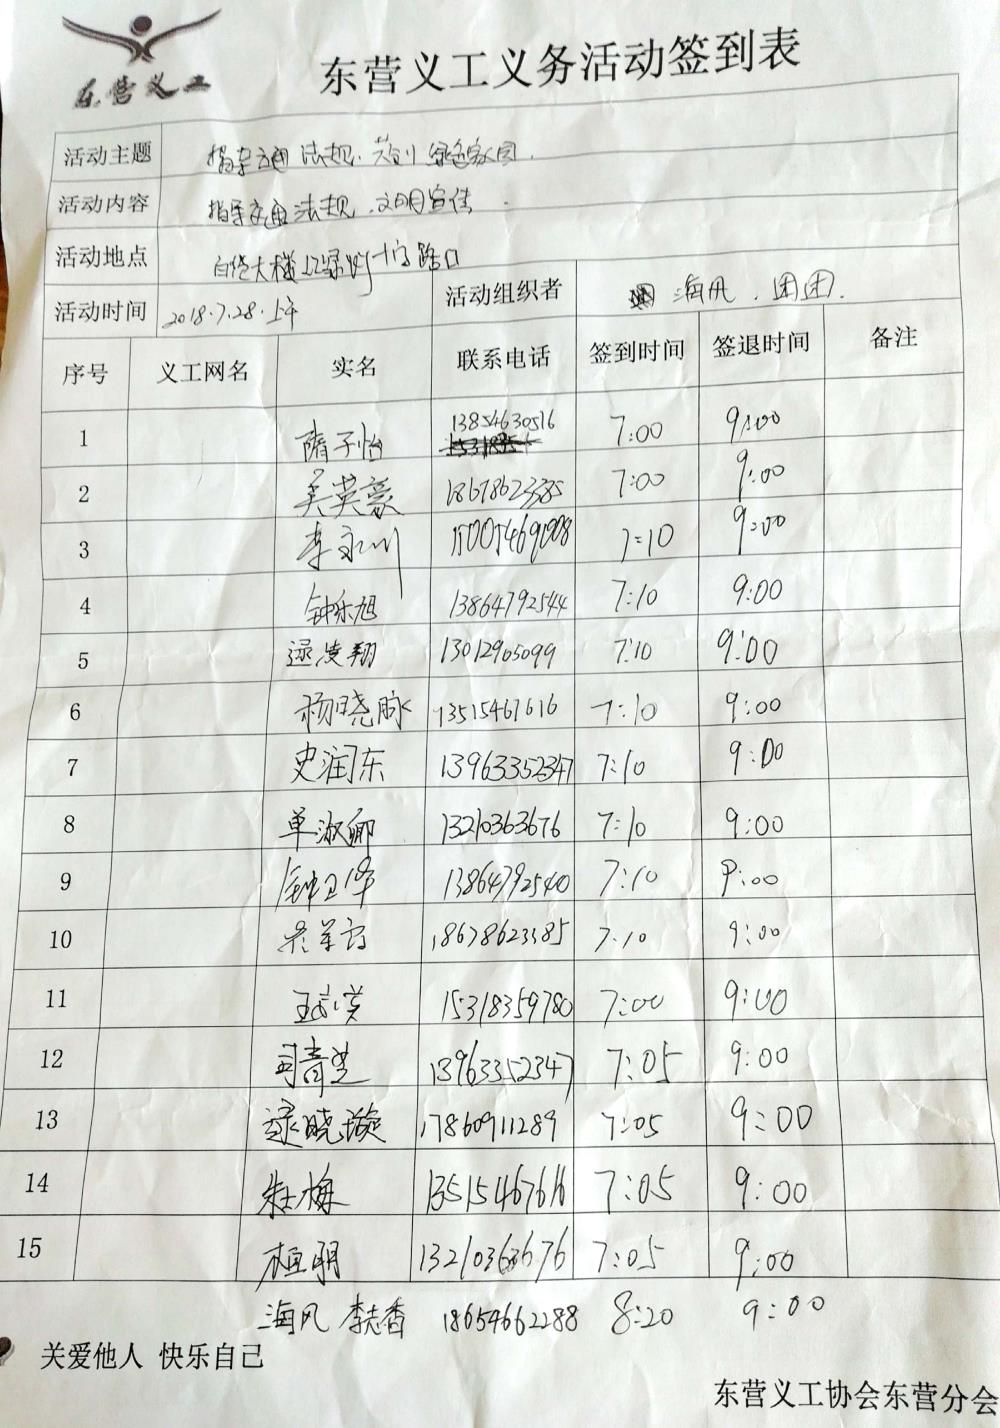 东营义工
东营义工义务活动签到表
活动主题 指导交通法规.共创绿色家园.
活动内容 指导交通法规.文明宣传.
活动地点 百货大楼红绿灯十字路口
活动时间 2018.7.28.上午 活动组织者 海风.团团.
序号 义工网名 实名 联系电话 签到时间 签退时间 备注
1 隋子怡 13854630516 7:00 9:00
2 吴英豪 18678623385 7:00 9:00
3 李永川 15005469008 7:10 9:00
4 钟乐旭 13864792544 7:10 9:00
5 逯凌翔 13012905099 7:10 9:00
6 杨晓脉 13515467616 7:10 9:00
7 史润东 13963352347 7:10 9:00
8 单淑卿 13210363676 7:10 9:00
9 钟卫华 13864792540 7:10 9:00
10 18678623385 7:10 9:00
11 15318359780 7:00 9:00
12 司青芝 13963352347 7:05 9:00
13 逯晓璇 17860911289 7:05 9:00
14 朱梅 13515467616 7:05 9:00
15 桓明 13210363676 7:05 9:00
海风 李志香 18654662288 8:20 9:00
关爱他人 快乐自己
东营义工协会东营分会